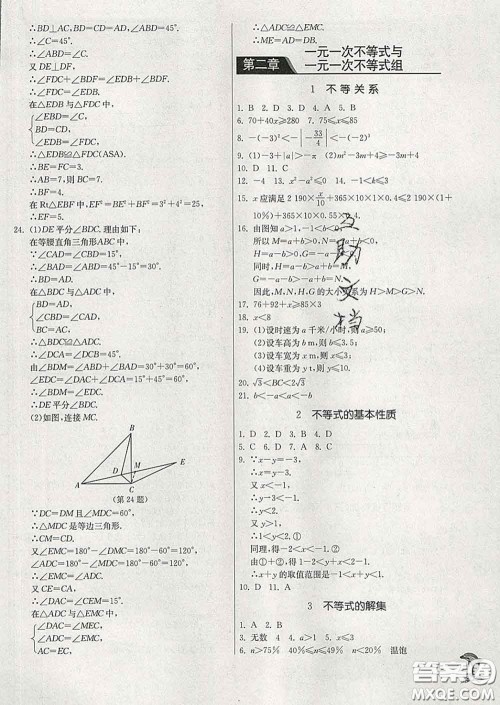 ∴BD⊥AC, BD=AD=CD.
∴∠C=45°.
∴∠ABD=∠C.
又 DE⊥DF,
∴∠FDC+∠BDF=∠EDB+∠BDF.
∴∠FDC=∠EDB.
在△EDB 与△FDC 中,
∠EBD=∠C,
BD=CD,
∠EDB=∠FDC,
∴△EDB≌△FDC(ASA).
∴BE=FC=3.
∴AB=7,则 BC=7.
∴BF=4.
在 Rt△EBF 中,EF²=BE²+BF²=3²+4²=25.
∴EF=5.
24. (1)DE 平分∠BDC. 理由如下:
在等腰直角三角形 ABC 中,
∵∠CAD=∠CBD=15°,
∴∠BAD=∠ABD=45°-15°=30°.
∴BD=AD.
在△BDC 与△ADC 中,
BD=AD,
∠CBD=∠CAD,
BC=AC,
∴△BDC≌△ADC.
∴∠DCB=∠DCA=45°.
由∠BDM=∠ABD+∠BAD=30°+30°=60°,
∠EDC=∠DAC+∠DCA=15°+45°=60°,
∴∠BDM=∠EDC.
∴DE 平分∠BDC.
(2)如图,连接 MC.
B
E
D
M
A
C
(第 24 题)
∵DC=DM 且∠MDC=60°,
∴△MDC 是等边三角形.
∴CM=CD.
又∠EMC=180°-∠DMC=180°-60°=120°,
∠ADC=180°-∠MDC=180°-60°=120°,
∴∠EMC=∠ADC.
又 CE=CA,
∴∠DAC=∠CEM=15°.
在△ADC 与△EMC 中,
∠DAC=∠MEC,
∠ADC=∠EMC,
AC=EC,
∴△ADC≌△EMC.
∴ME=AD=DB.
第二章
一元一次不等式与
一元一次不等式组
1 不等关系
1. B 2. D 3. D 4. A 5. B
6. 70+40x≥280 7. 75≤x≤85
8. -(-3)²<-|-33/4|<-(-3)³
9. (1)-3+|a|>-π (2)m²-3m+4≥-m+4
10. D 11. C
12. -4 13. x²-a²≤0 14. -1<k≤0
15. x 应满足 2 190×x/10+365×10×0.4≤2 190(1+
10%)+365×10×0.55.
16. 由图知 a>1,-1<b<0.
所以 M=a+b>0,N=
H=a-b>0,G=-a-b<
同时,H-M=
M-G=
因此,M、N、H、G 的大小关系为 H>M>G>N.
17. 76+92+x≥85×3
18. x<8
19. (1)设时速为 a 千米/小时,则 a≥50;
(2)设车高为 b m,则 b≤3.5;
(3)设车宽为 x m,则 x≤3;
(4)设车重为
20. √3<BC<2√3
21. b<-a<a<-b
2 不等式的基本性质
1. D 2. D 3. D 4. B 5. C 6. A 7. A 8. D
9. ∵x-y=-3,
∴x=y-3.
又 x<-1,
∴y-3<-1.
∴y<2.
又 y>1,
∴1<y<2.
同理,得-2<x<-1.
由①+②得-1<x+y<1.
∴x+y 的取值范围是-1<x+y<1.
10. D 11. A
3 不等式的解集
1. A 2. B
3. 无数 4 4. a>1 5. x≤3
6. n>75% 40%≤n≤49% n<20% 温饱
互助文档
答案圈
MXQE.COM